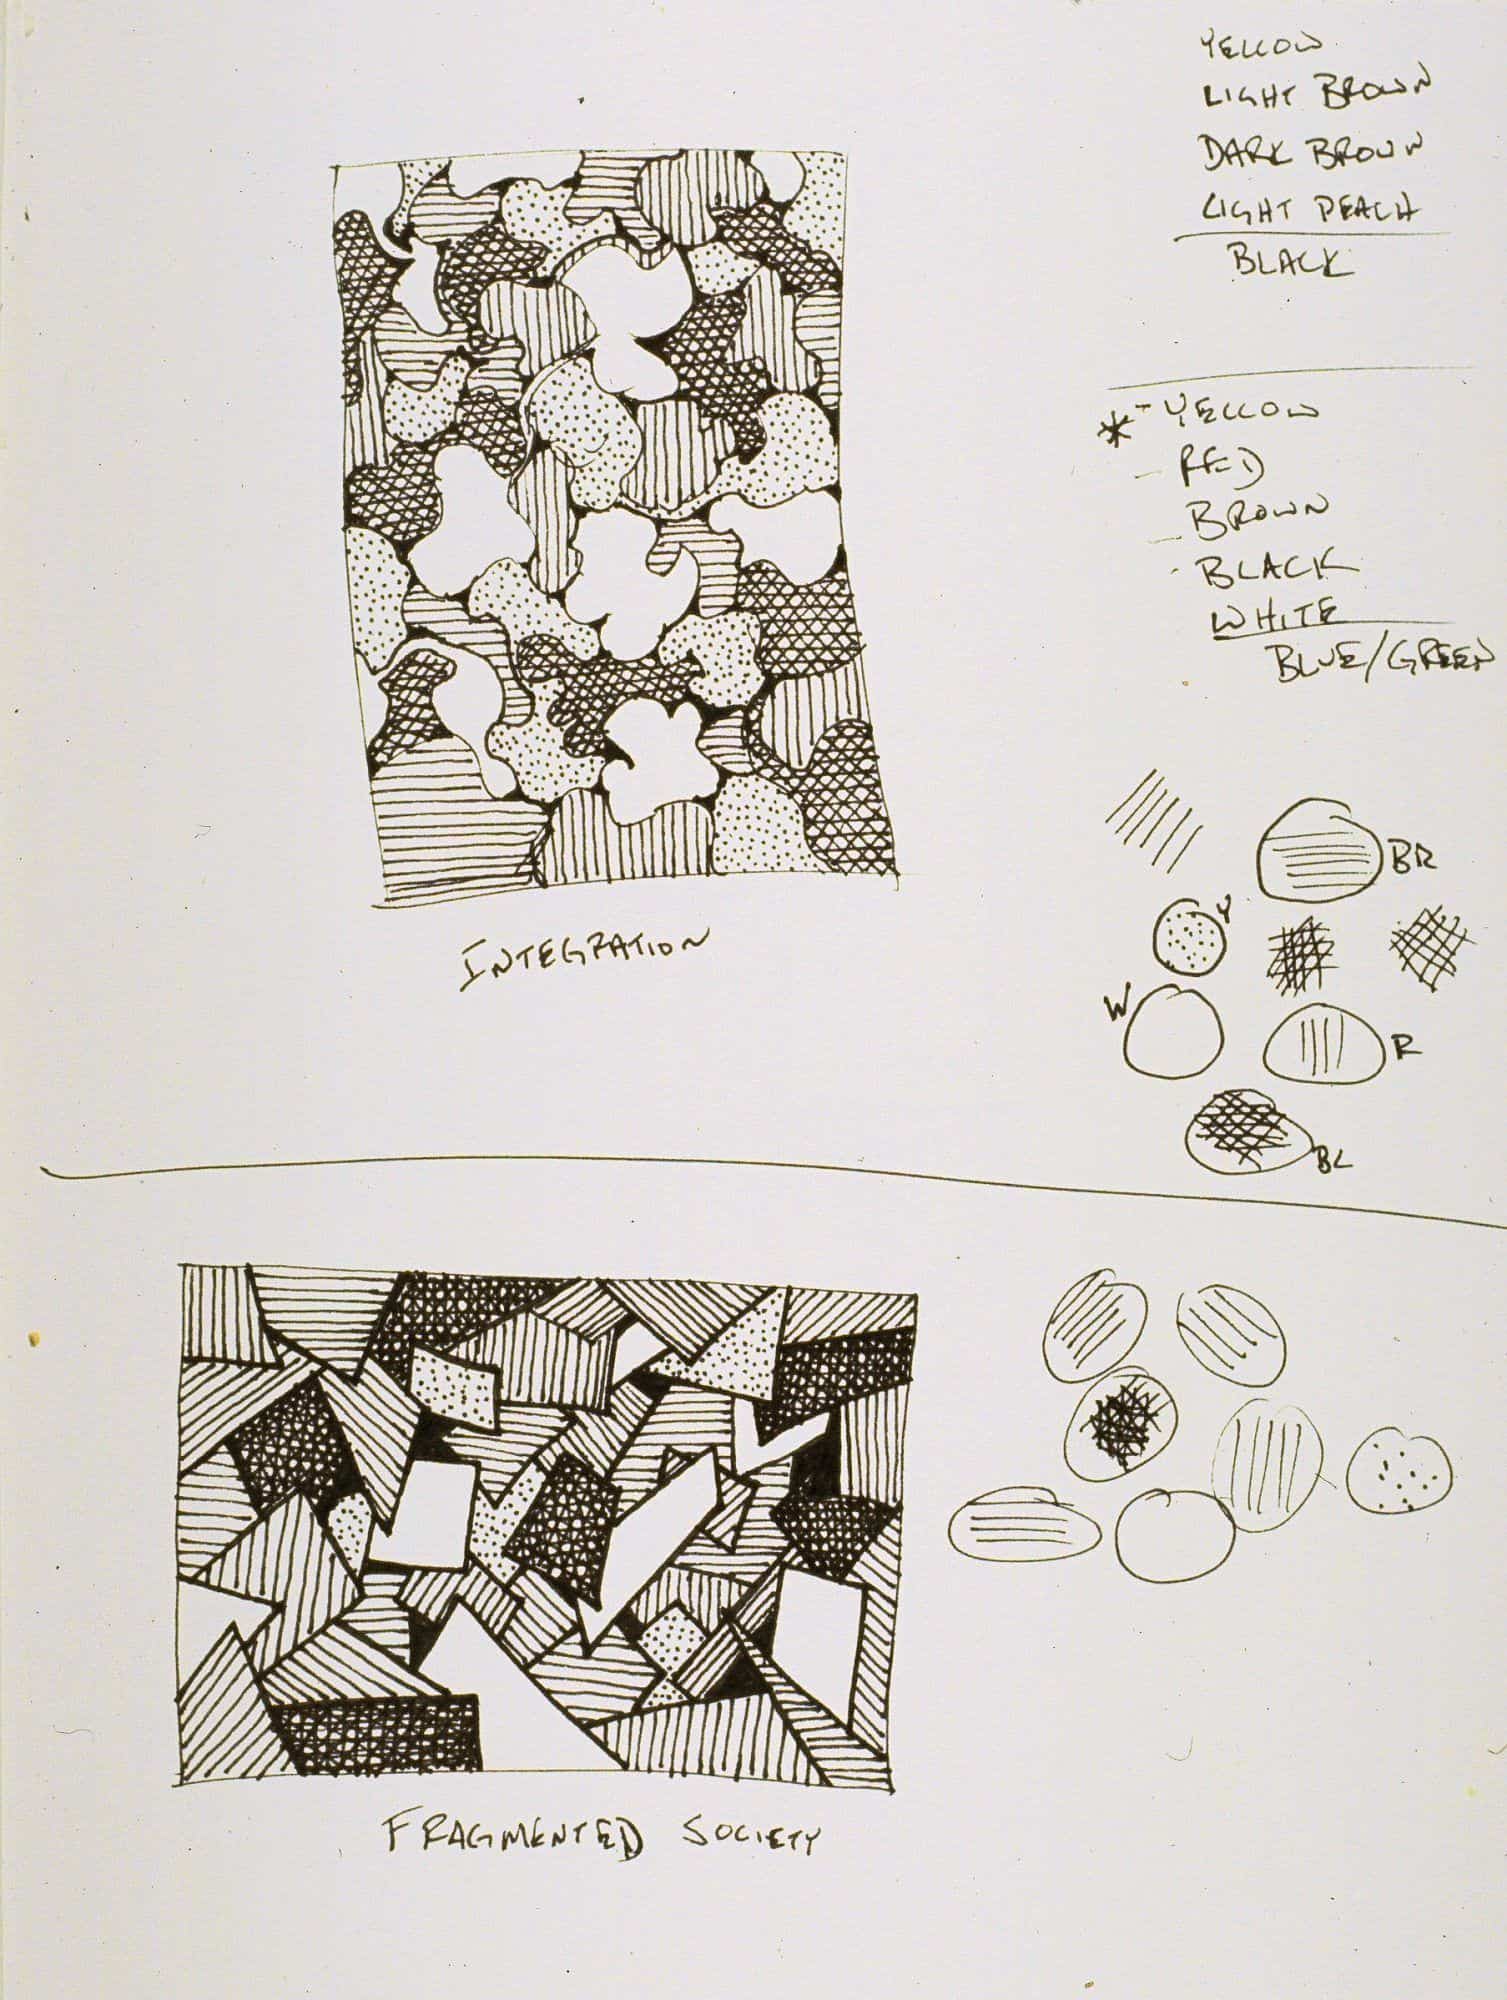 YELLOW
LIGHT BROWN
DARK BROWN
LIGHT PEACH
BLACK
* - YELLOW
- RED
- BROWN
- BLACK
WHITE
BLUE/GREEN
BR
Y
W
R
BL
INTEGRATION
FRAGMENTED SOCIETY